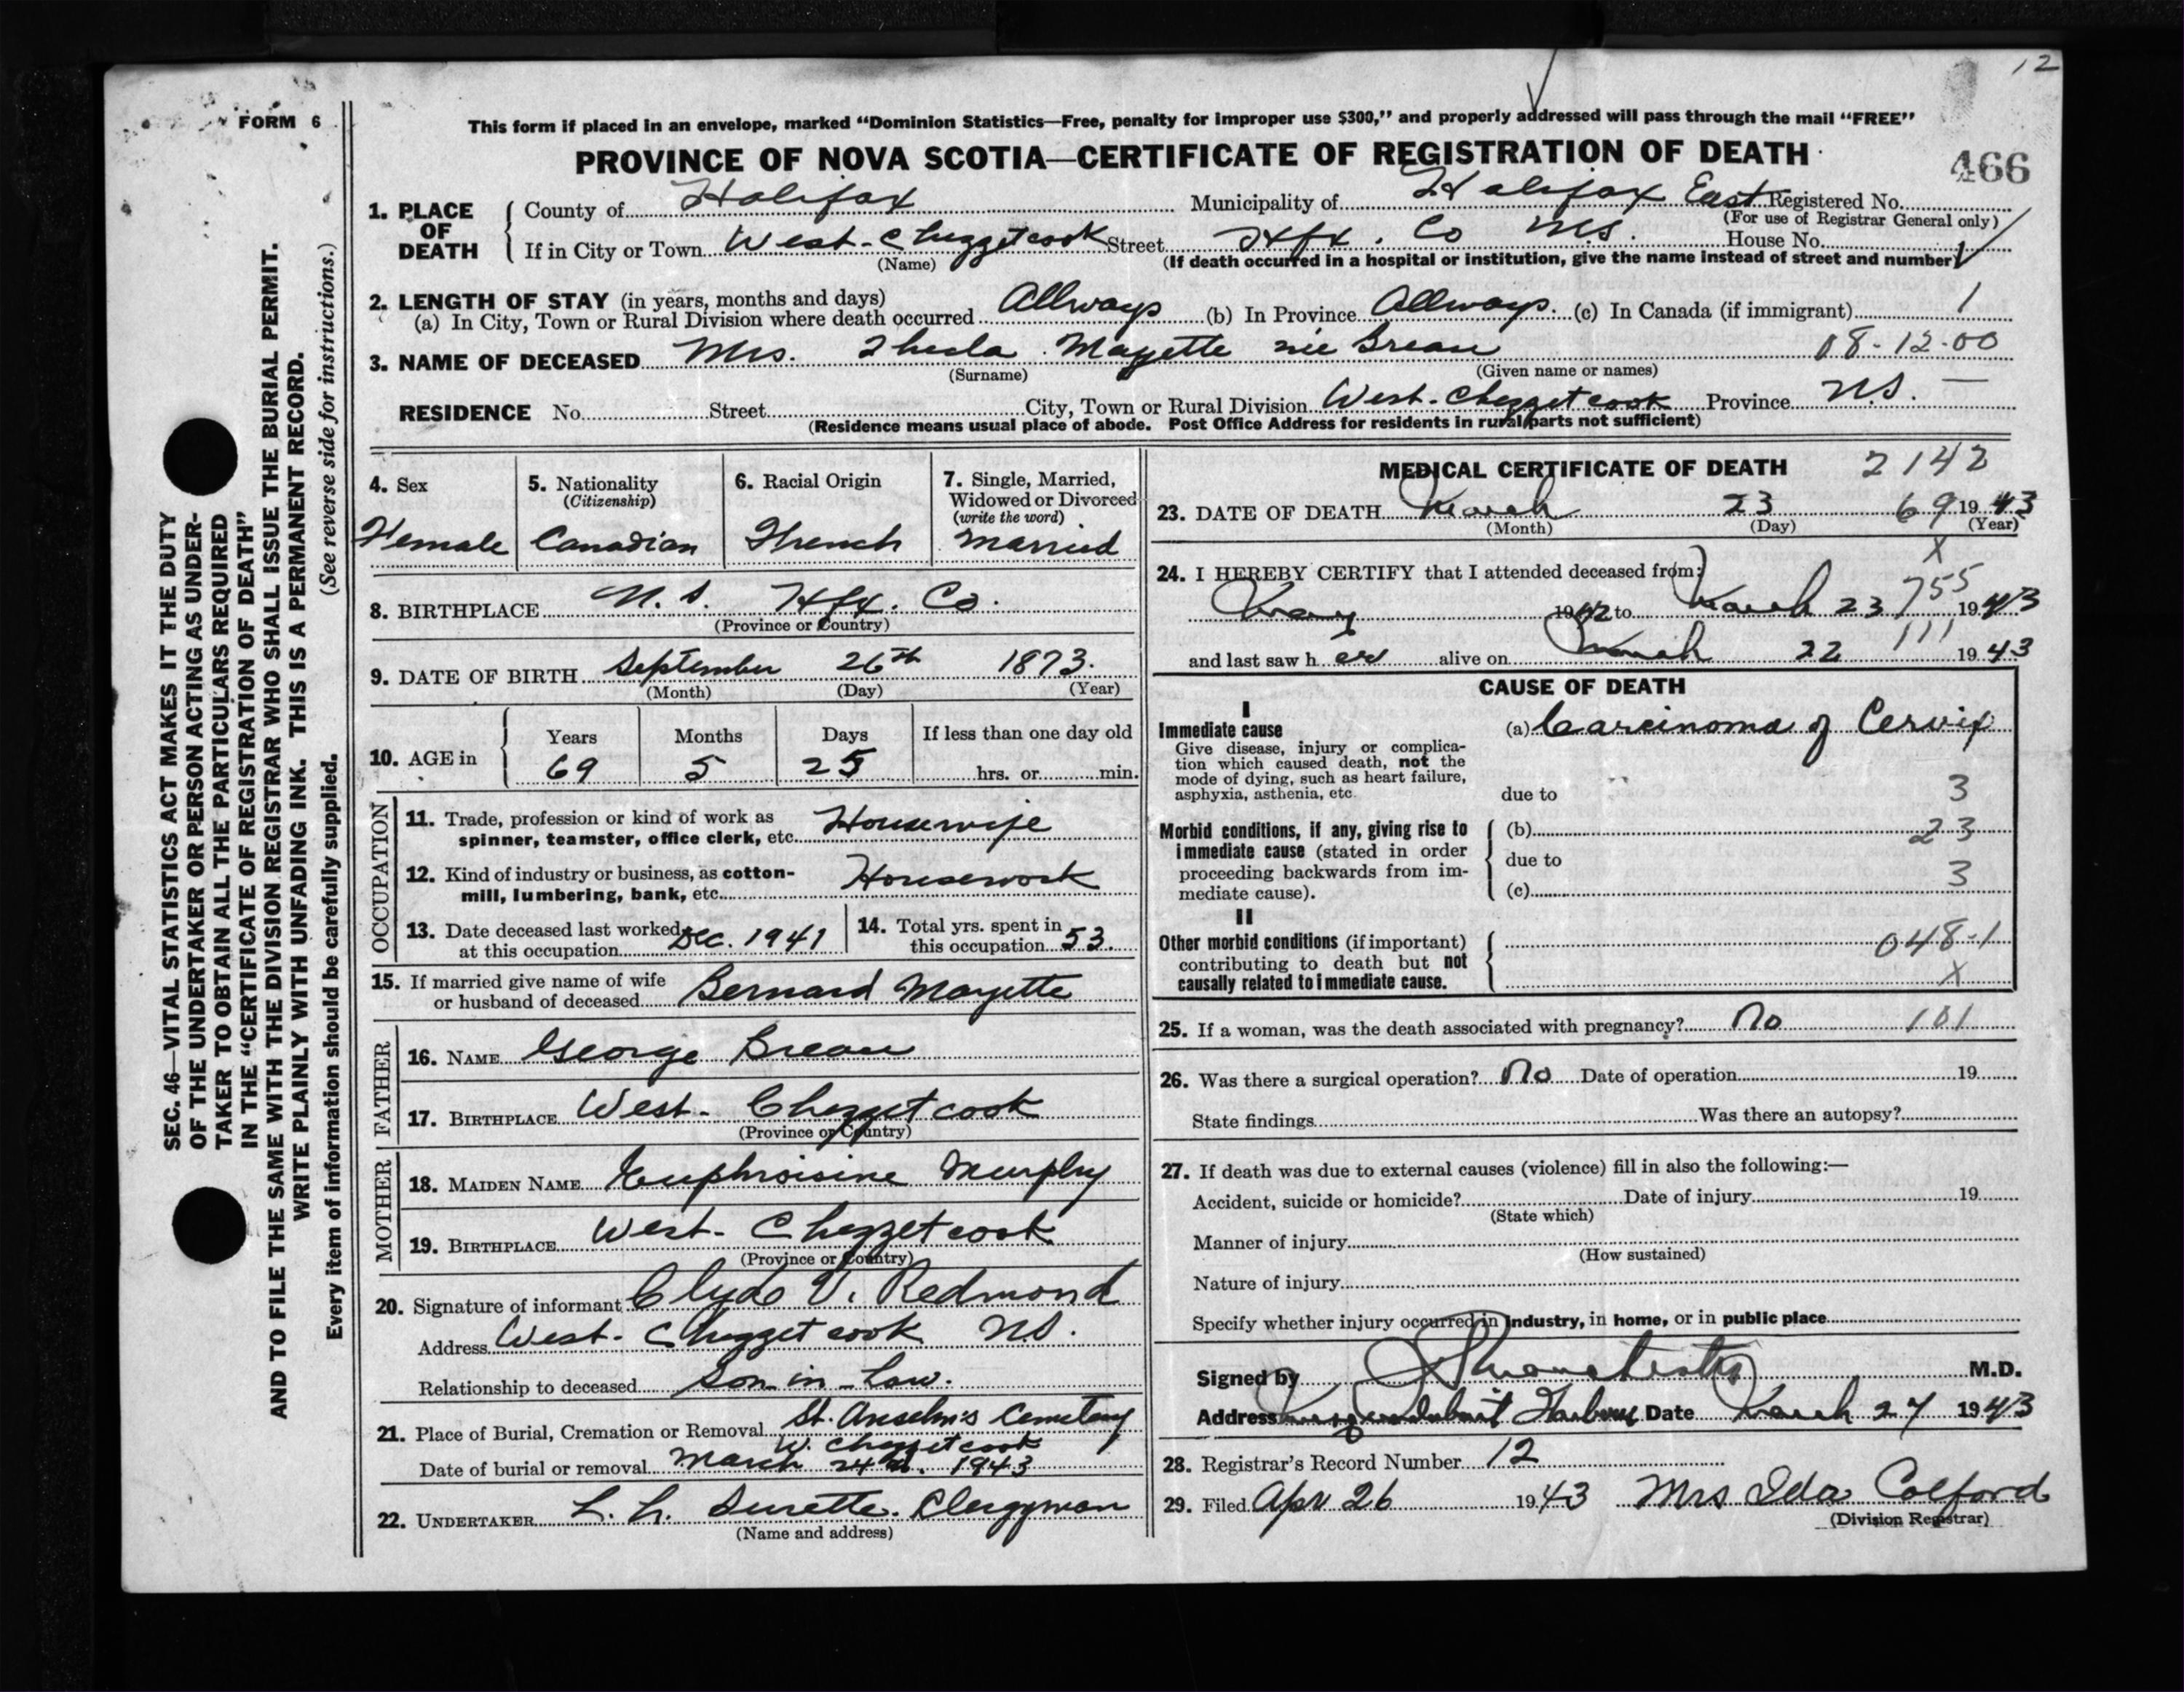 12
FORM 6
This form if placed in an envelope, marked "Dominion Statistics—Free, penalty for improper use $300," and properly addressed will pass through the mail "FREE"
PROVINCE OF NOVA SCOTIA—CERTIFICATE OF REGISTRATION OF DEATH
466
1. PLACE OF DEATH
County of Halifax Municipality of Halifax East Registered No.
(For use of Registrar General only)
If in City or Town West-Chezzetcook Street Hfx. Co N.S. House No.
(Name) (If death occurred in a hospital or institution, give the name instead of street and number)
2. LENGTH OF STAY (in years, months and days)
(a) In City, Town or Rural Division where death occurred Allways (b) In Province Allways. (c) In Canada (if immigrant) 1
3. NAME OF DECEASED Mrs. Thecla Mayette née Breau 08-12-00
(Surname) (Given name or names)
RESIDENCE No. Street City, Town or Rural Division West-Chezzetcook Province N.S. —
(Residence means usual place of abode. Post Office Address for residents in rural parts not sufficient)
4. Sex Female
5. Nationality (Citizenship) Canadian
6. Racial Origin Fhrench
7. Single, Married, Widowed or Divorced (write the word) Married
8. BIRTHPLACE N.S. Hfx. Co.
(Province or Country)
9. DATE OF BIRTH September 26th 1873.
(Month) (Day) (Year)
10. AGE in Years 69 Months 5 Days 25 If less than one day old hrs. or min.
OCCUPATION
11. Trade, profession or kind of work as spinner, teamster, office clerk, etc. Housewife
12. Kind of industry or business, as cotton-mill, lumbering, bank, etc. Housework
13. Date deceased last worked at this occupation Dec. 1941
14. Total yrs. spent in this occupation 53.
15. If married give name of wife or husband of deceased Bernard Mayette
FATHER
16. NAME George Breau
17. BIRTHPLACE West-Chezzetcook
(Province or Country)
MOTHER
18. MAIDEN NAME Euphroisine Murphy
19. BIRTHPLACE West-Chezzetcook
(Province or Country)
20. Signature of informant Clyde V. Redmond
Address West-Chezzetcook N.S.
Relationship to deceased Son-in-Law.
21. Place of Burial, Cremation or Removal St. Anselm's Cemetery
W. Chezzetcook
Date of burial or removal March 24th. 1943
22. UNDERTAKER L. L. Surette. Clergyman
(Name and address)
MEDICAL CERTIFICATE OF DEATH 2142
23. DATE OF DEATH March 23 69 1943
(Month) (Day) (Year)
X
24. I HEREBY CERTIFY that I attended deceased from:
May 1942 to March 23 755 1943
and last saw her alive on March 22 111 1943
CAUSE OF DEATH
I
Immediate cause (a) Carcinoma of Cervix
Give disease, injury or complication which caused death, not the mode of dying, such as heart failure, asphyxia, asthenia, etc.
due to 3
Morbid conditions, if any, giving rise to immediate cause (stated in order proceeding backwards from immediate cause).
(b) 23
due to
(c) 3
II
Other morbid conditions (if important) contributing to death but not causally related to immediate cause.
048-1
X
25. If a woman, was the death associated with pregnancy? No 101
26. Was there a surgical operation? No Date of operation 19
State findings Was there an autopsy?
27. If death was due to external causes (violence) fill in also the following:—
Accident, suicide or homicide? Date of injury 19
(State which)
Manner of injury
(How sustained)
Nature of injury
Specify whether injury occurred in industry, in home, or in public place
Signed by M.D.
Address Musquodoboit Harbour Date March 27 1943
28. Registrar's Record Number 12
29. Filed Apr 26 1943 Mrs Ida Colford
(Division Registrar)
SEC. 46—VITAL STATISTICS ACT MAKES IT THE DUTY
OF THE UNDERTAKER OR PERSON ACTING AS UNDER-
TAKER TO OBTAIN ALL THE PARTICULARS REQUIRED
IN THE "CERTIFICATE OF REGISTRATION OF DEATH"
AND TO FILE THE SAME WITH THE DIVISION REGISTRAR WHO SHALL ISSUE THE BURIAL PERMIT.
WRITE PLAINLY WITH UNFADING INK. THIS IS A PERMANENT RECORD.
Every item of information should be carefully supplied. (See reverse side for instructions.)